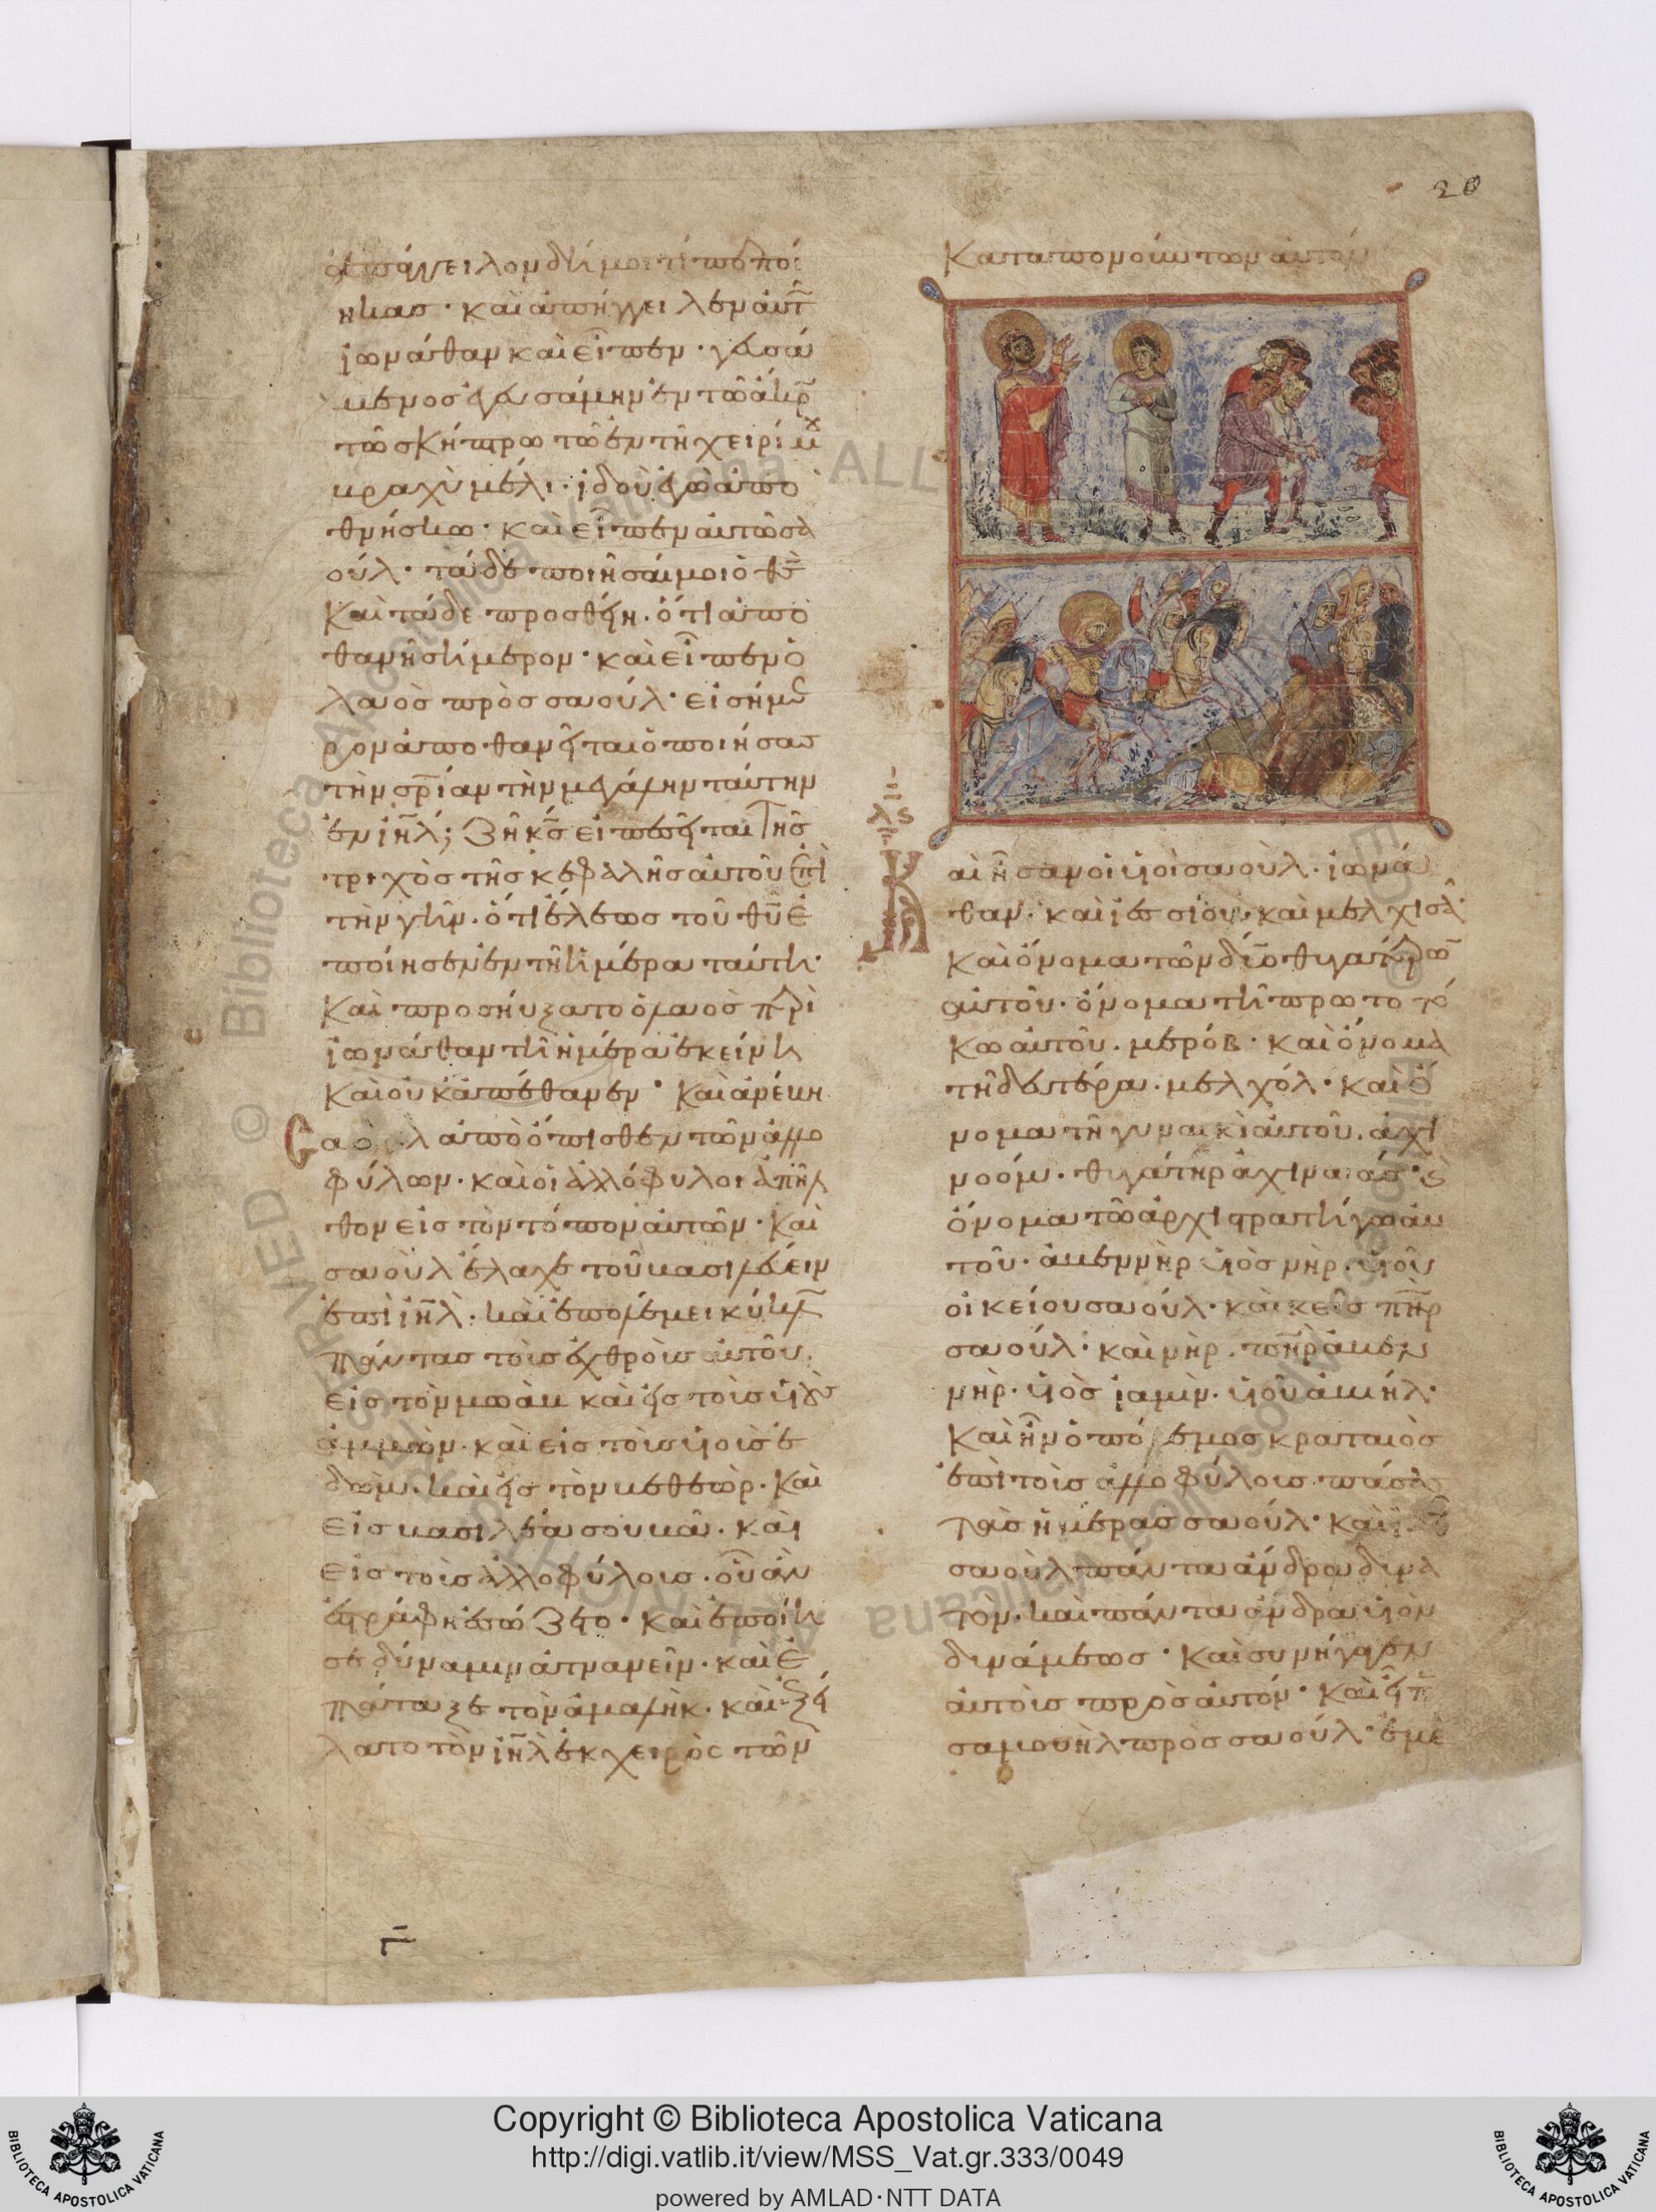 20
ἀπάγγειλον δή μοι τί πεποί
ηκας · καὶ ἀπήγγειλεν αὐτ
ἰωνάθαν καὶ εἶπεν · γευσά
μενος ἐγευσάμην ἐν τῶ ἄκρ
τῶ σκήπτρω τῶ ἐν τῆ χειρί μ
βραχὺ μέλι · ἰδοὺ ἐγὼ ἀπο
θνήσκω · καὶ εἶπεν αὐτῶ σα
ούλ · τάδε ποιῆσαί μοι ὁ θς
καὶ τάδε προσθείη · ὅτι ἀπο
θανῆ σήμερον · καὶ εἶπεν ὁ
λαὸς πρὸς σαούλ · εἰ σήμε
ρον ἀποθανεῖται ὁ ποιήσας
τὴν σρίαν τὴν μεγάλην ταύτην
ἐν ιηλ; ζῆ κς εἰ πεσεῖται τῆς
τριχὸς τῆς κεφαλῆς αὐτοῦ ἐπὶ
τὴν γῆν · ὅτι ἔλεως τοῦ θυ ἐ
ποίησεν ἐν τῆ ἡμέρα ταύτη ·
καὶ προσηύξατο ὁ λαὸς περὶ
ἰωνάθαν τῆ ἡμέρα ἐκείνη
καὶ οὐκ ἀπέθανεν · καὶ ἀνέβη
σαοὺλ ἀπὸ ὄπισθεν τῶν ἀλλο
φύλων · καὶ οἱ ἀλλόφυλοι ἀπῆλ
θον εἰς τὸν τόπον αὐτῶν · καὶ
σαοὺλ ἔλαχε τοῦ βασιλεύειν
ἐπὶ ιηλ · καὶ ἐπολέμει κύκλ
πάντας τοὺς ἐχθροὺς αὐτοῦ ·
εἰς τὸν μωὰβ καὶ εἰς τοὺς υἱοὺς
ἀμμών · καὶ εἰς τοὺς υἱοὺς ἐ
δώμ · καὶ εἰς τὸν βεθεώρ · καὶ
εἰς βασιλέα σουβᾶ · καὶ
εἰς τοὺς ἀλλοφύλους · οὗ ἂν
ἐστράφη ἐσώζετο · καὶ ἐποίη
σε δύναμιν ἀτναμεῖν · καὶ ἐ
πάταξε τὸν ἀμαλήκ · καὶ ἐξεί
λατο τὸν ιηλ ἐκ χειρὸς τῶν
καταπονούντων αὐτόν
λς
Καὶ ἦσαν οἱ υἱοὶ σαούλ · ἰωνά
θαν · καὶ ἰεσσιού · καὶ μελχισὰ
καὶ ὄνομα τῶν δύο θυγατέρω
αὐτοῦ · ὄνομα τῆ πρωτοτό
κω αὐτοῦ · μερόβ · καὶ ὄνομα
τῆ δευτέρα · μελχόλ · καὶ ὄ
νομα τῆ γυναικὶ αὐτοῦ · ἀχι
νοόμ · θυγάτηρ ἀχιναάς · κὲ
ὄνομα τῶ ἀρχιστρατήγω αὐ
τοῦ · ἀβεννὴρ υἱὸς νήρ · υἱοῦ
οἰκείου σαούλ · καὶ κεὶς πηρ
σαούλ · καὶ νήρ · πηρ ἀβεν
νήρ · υἱὸς ἰαμίν · υἱοῦ ἀβιήλ ·
καὶ ἦν ὁ πόλεμος κραταιὸς
ἐπὶ τοὺς ἀλλοφύλους πάσας
τὰς ἡμέρας σαούλ · καὶ
σαοὺλ πάντα ἄνδρα δυνα
τόν · καὶ πάντα ἄνδρα υἱὸν
δυνάμεως · καὶ συνήγαγεν
αὐτοὺς πρὸς αὐτόν · καὶ εἶπ
σαμουὴλ πρὸς σαούλ · ἐμὲ
Biblioteca Apostolica Vaticana
Copyright © Biblioteca Apostolica Vaticana
http://digi.vatlib.it/view/MSS_Vat.gr.333/0049
powered by AMLAD·NTT DATA
BIBLIOTECA APOSTOLICA VATICANA
BIBLIOTECA APOSTOLICA VATICANA